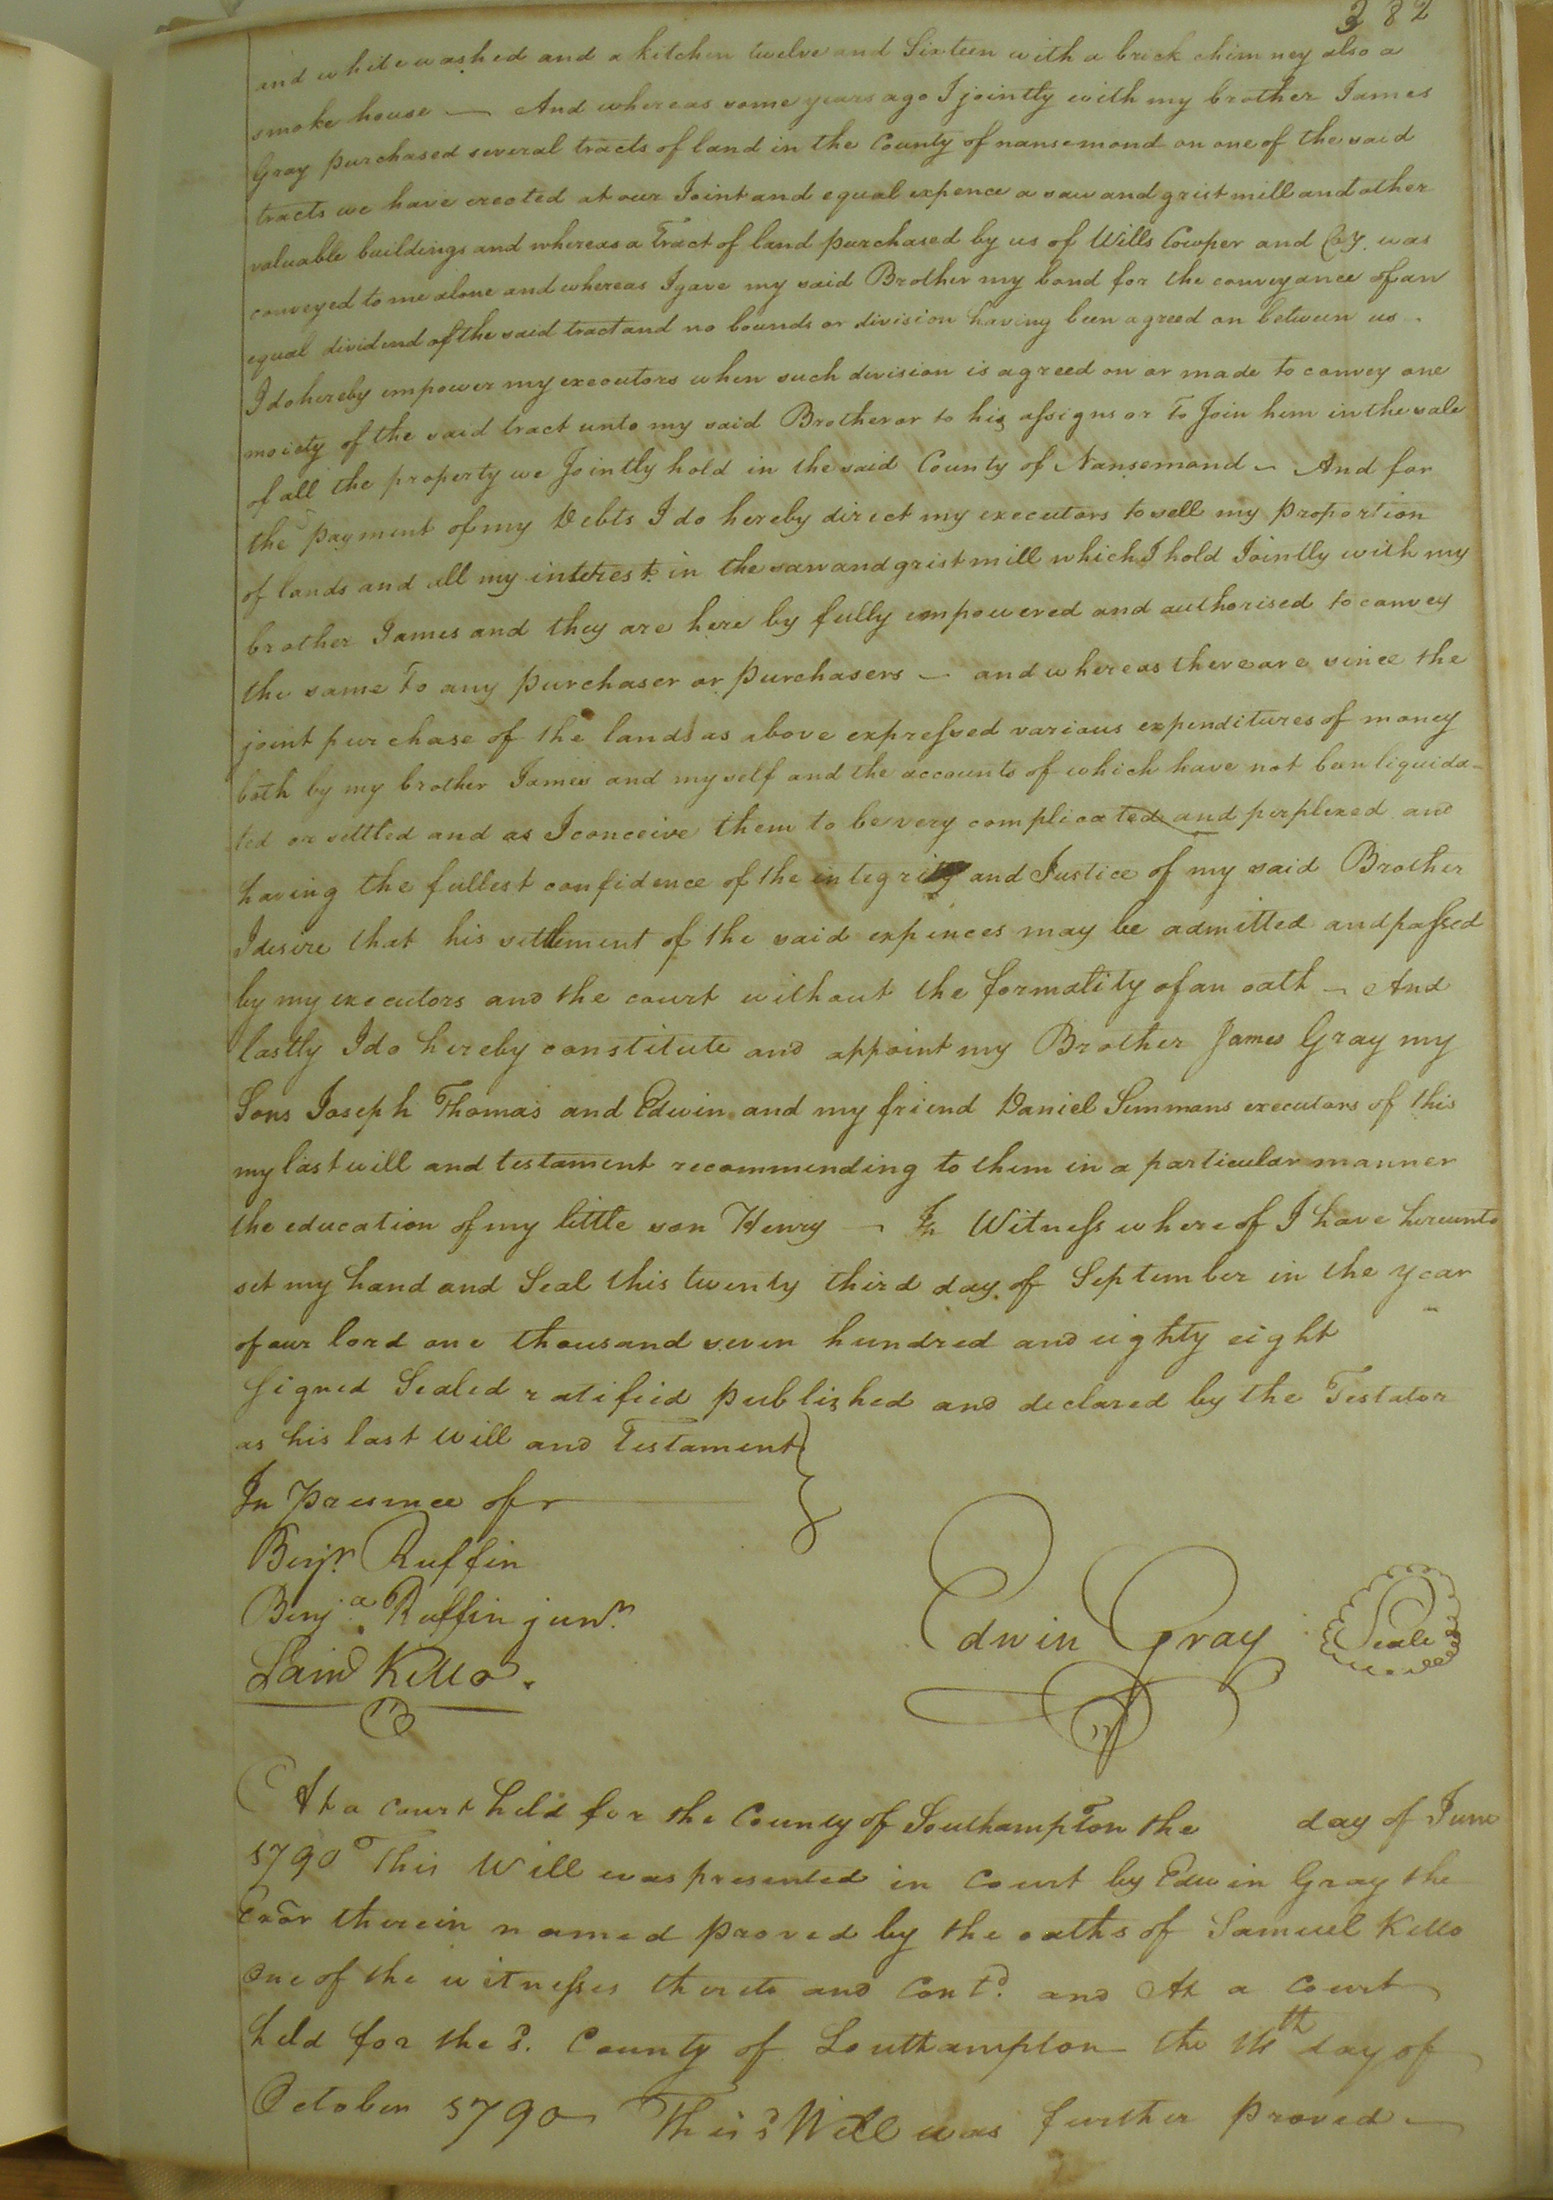 382
and white washed and a kitchen twelve and Sixteen with a brick chimney also a
smoke house — And whereas some years ago I jointly with my brother James
Gray purchased several tracts of land in the County of nansemond on one of the said
tracts we have erected at our Joint and equal expence a saw and grist mill and other
valuable buildings and whereas a Tract of land purchased by us of Wills Cowper and Coy. was
conveyed to me alone and whereas I gave my said Brother my bond for the conveyance of an
equal dividend of the said tract and no bounds or division having been agreed on between us -
I do hereby empower my executors when such devision is agreed on or made to convey one
moiety of the said tract unto my said Brother or to his assigns or To Join him in the sale
of all the property we Jointly hold in the said County of Nansemond — And for
the payment of my Debts I do hereby direct my executors to sell my proportion
of lands and all my interest in the saw and grist mill which I hold Jointly with my
brother James and they are here by fully empowered and authorised to convey
the same To any purchaser or purchasers — and whereas there are since the
joint purchase of the lands as above expressed various expenditures of money
both by my brother James and myself and the accounts of which have not been liquida-
ted or settled and as I conceive them to be very complicated and perplexed and
having the fullest confidence of the integrity and Justice of my said Brother
I desire that his settlement of the said expences may be admitted and passed
by my executors and the court without the formality of an oath — And
lastly I do hereby constitute and appoint my Brother James Gray my
Sons Joseph Thomas and Edwin and my friend Daniel Simmons executors of this
my last will and testament recommending to them in a particular manner
the education of my little son Henry — In Witness whereof I have hereunto
set my hand and Seal this twenty third day of September in the year
of our lord one thousand seven hundred and eighty eight
Signed Sealed ratified published and declared by the Testator
as his last will and Testament
In Presence of
Benjn. Ruffin
Benja. Ruffin junr.
Saml Kello.
Edwin Gray Seale
At a Court held for the County of Southampton the day of June
1790 This Will was presented in Court by Edwin Gray the
Exor therein named proved by the oaths of Samuel Kello
One of the witnesses thereto and Contd. and At a Court
held for the sd. County of Southampton the 14th day of
October 1790 This sd Will was further proved